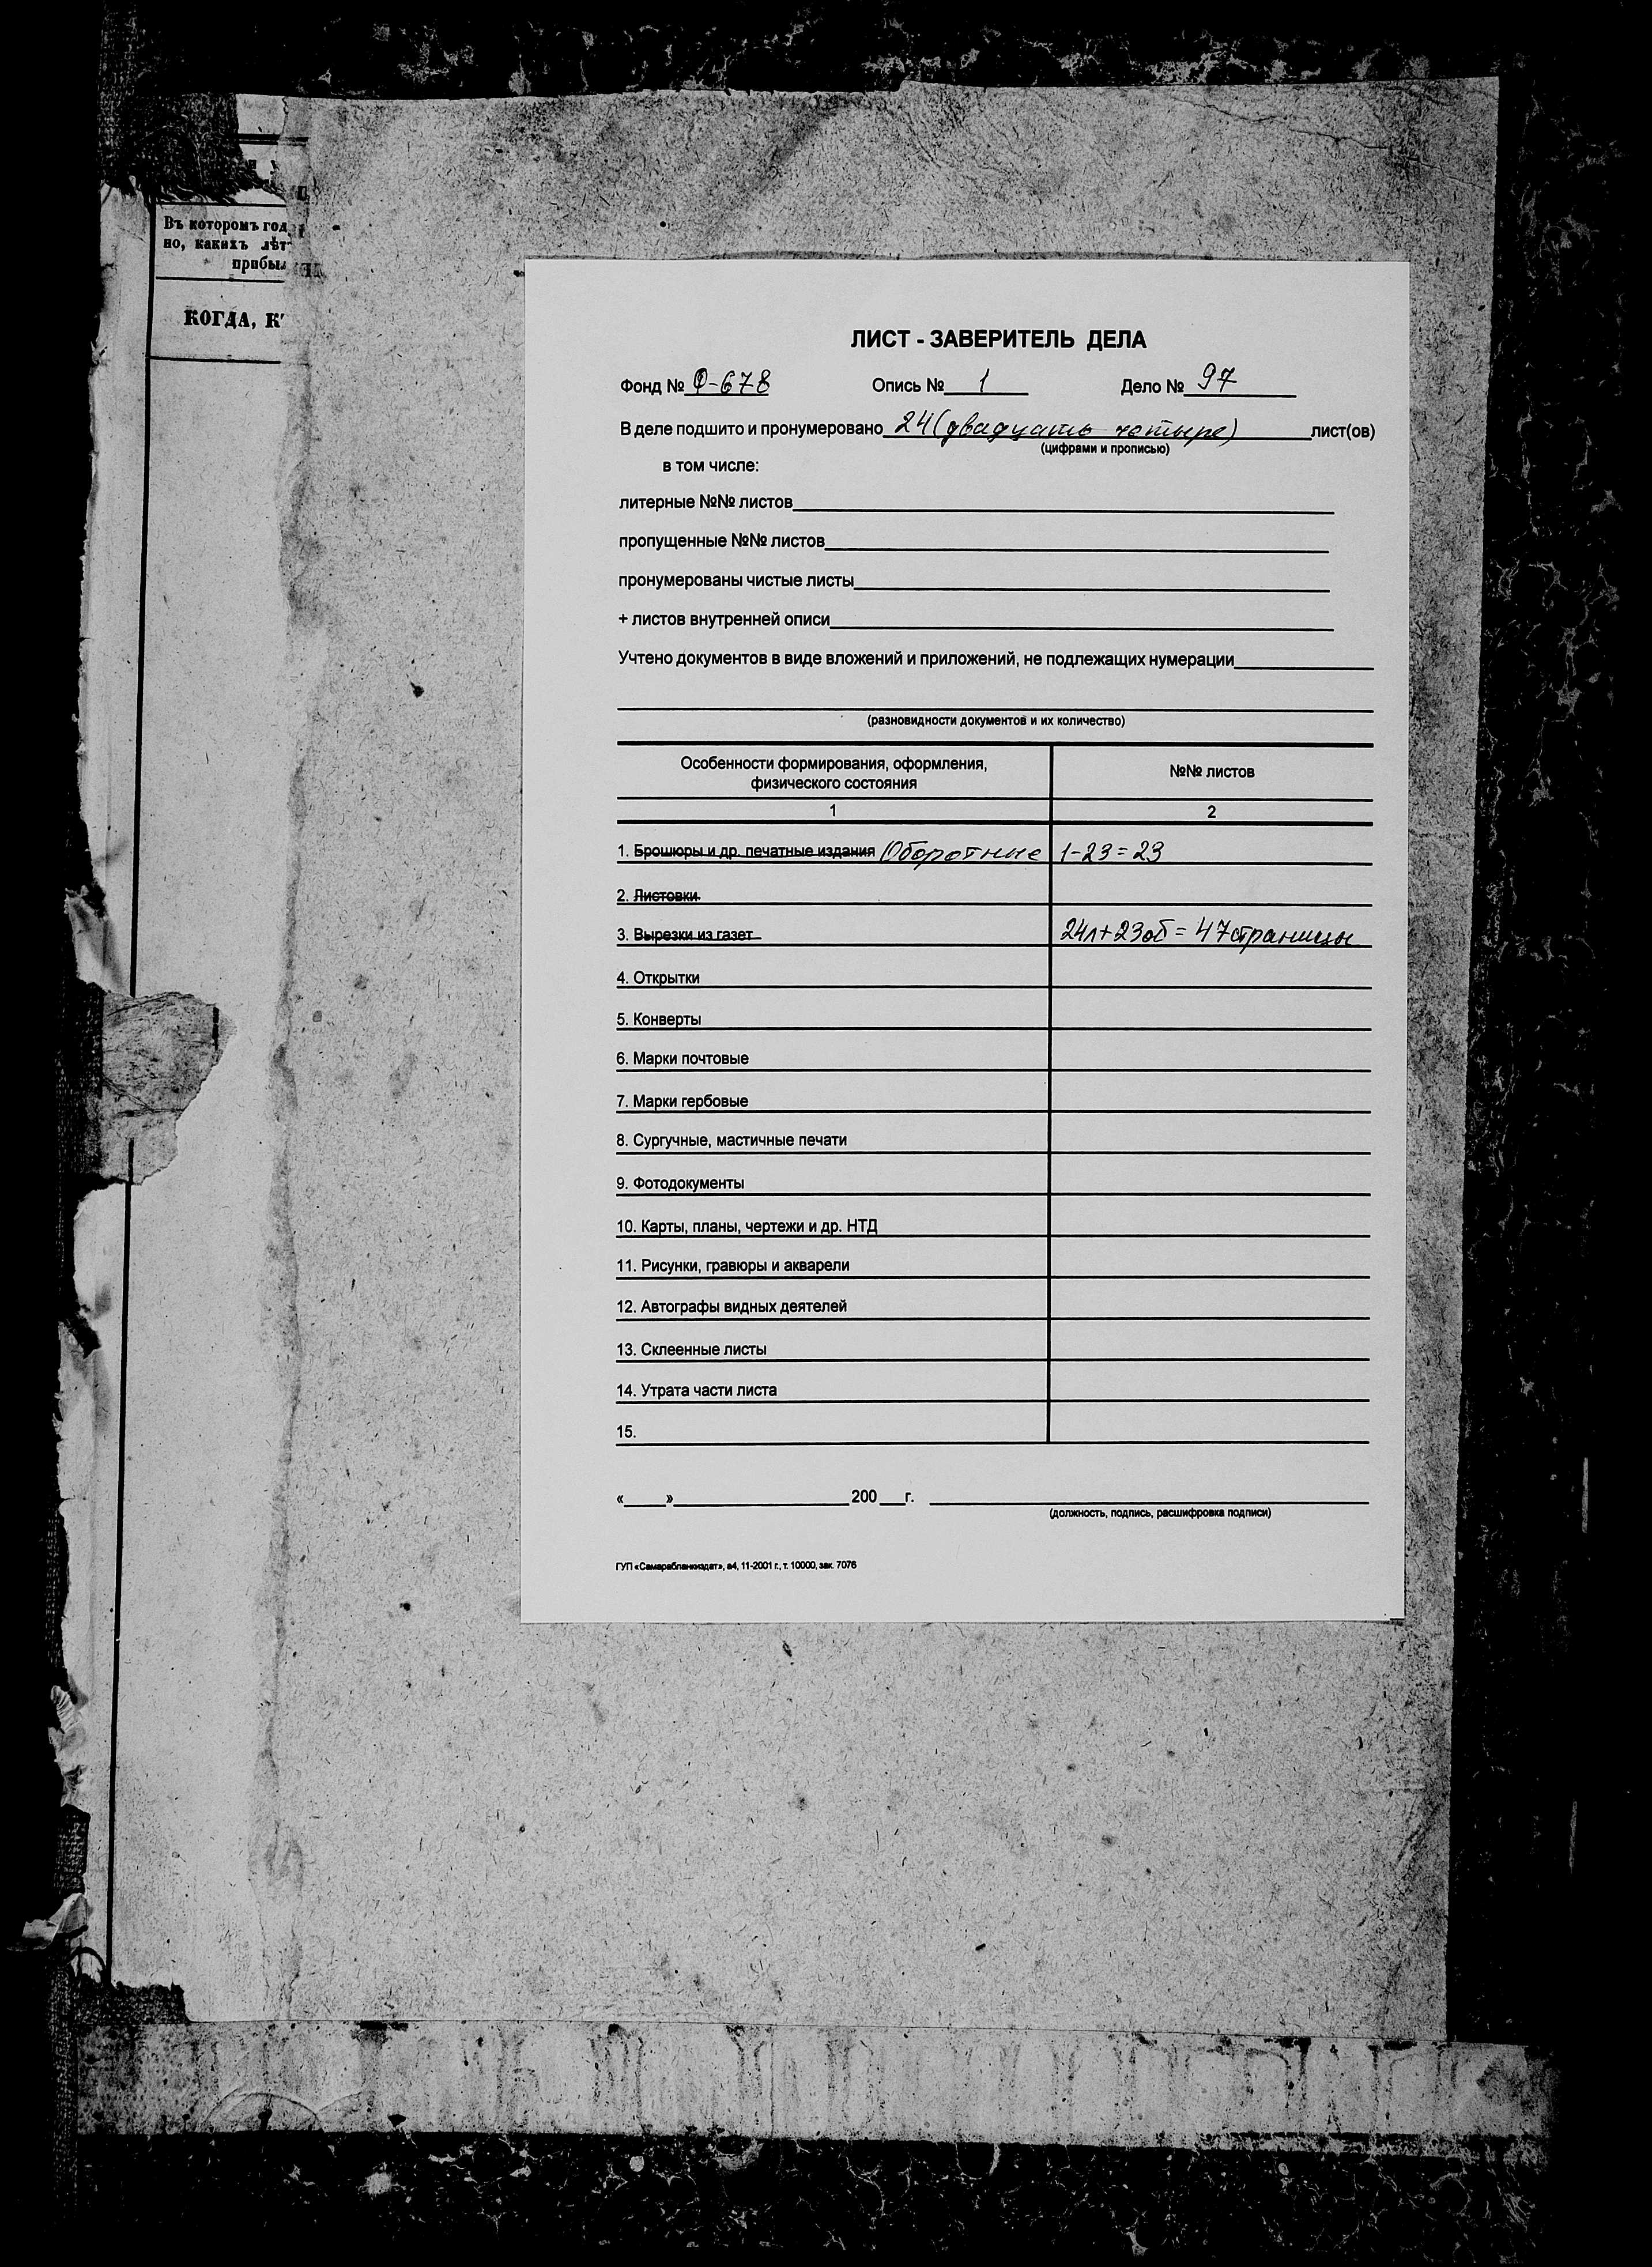 Въ которомъ год
но, какихъ лѣт
прибы
КОГДА, К
ЛИСТ - ЗАВЕРИТЕЛЬ ДЕЛА
Фонд № Ф-678 Опись № 1 Дело № 97
В деле подшито и пронумеровано 24 (двадцать четыре) лист(ов)
(цифрами и прописью)
в том числе:
литерные №№ листов
пропущенные №№ листов
пронумерованы чистые листы
+ листов внутренней описи
Учтено документов в виде вложений и приложений, не подлежащих нумерации
(разновидности документов и их количество)
Особенности формирования, оформления, №№ листов
физического состояния
1 2
1. Брошюры и др. печатные издания Оборотные 1-23=23
2. Листовки
3. Вырезки из газет 24л+23об = 47страницы
4. Открытки
5. Конверты
6. Марки почтовые
7. Марки гербовые
8. Сургучные, мастичные печати
9. Фотодокументы
10. Карты, планы, чертежи и др. НТД
11. Рисунки, гравюры и акварели
12. Автографы видных деятелей
13. Склеенные листы
14. Утрата части листа
15.
«____»____________200 __г.
(должность, подпись, расшифровка подписи)
ГУП «Самарабланкиздат», а4, 11-2001 г., т. 10000, зак. 7076